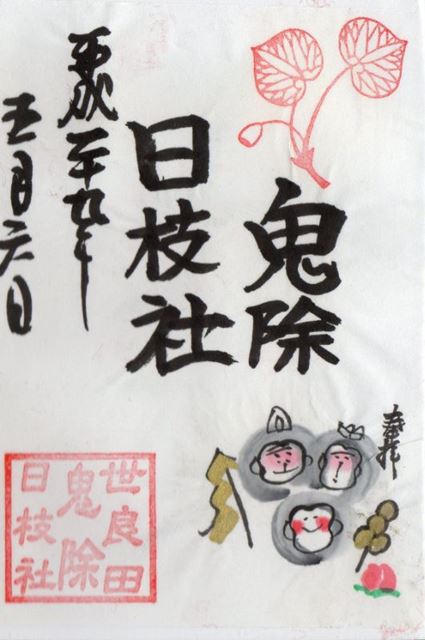 奉拝
鬼除
日枝社
平成二十九年
五月六日
世良田
鬼除
日枝社